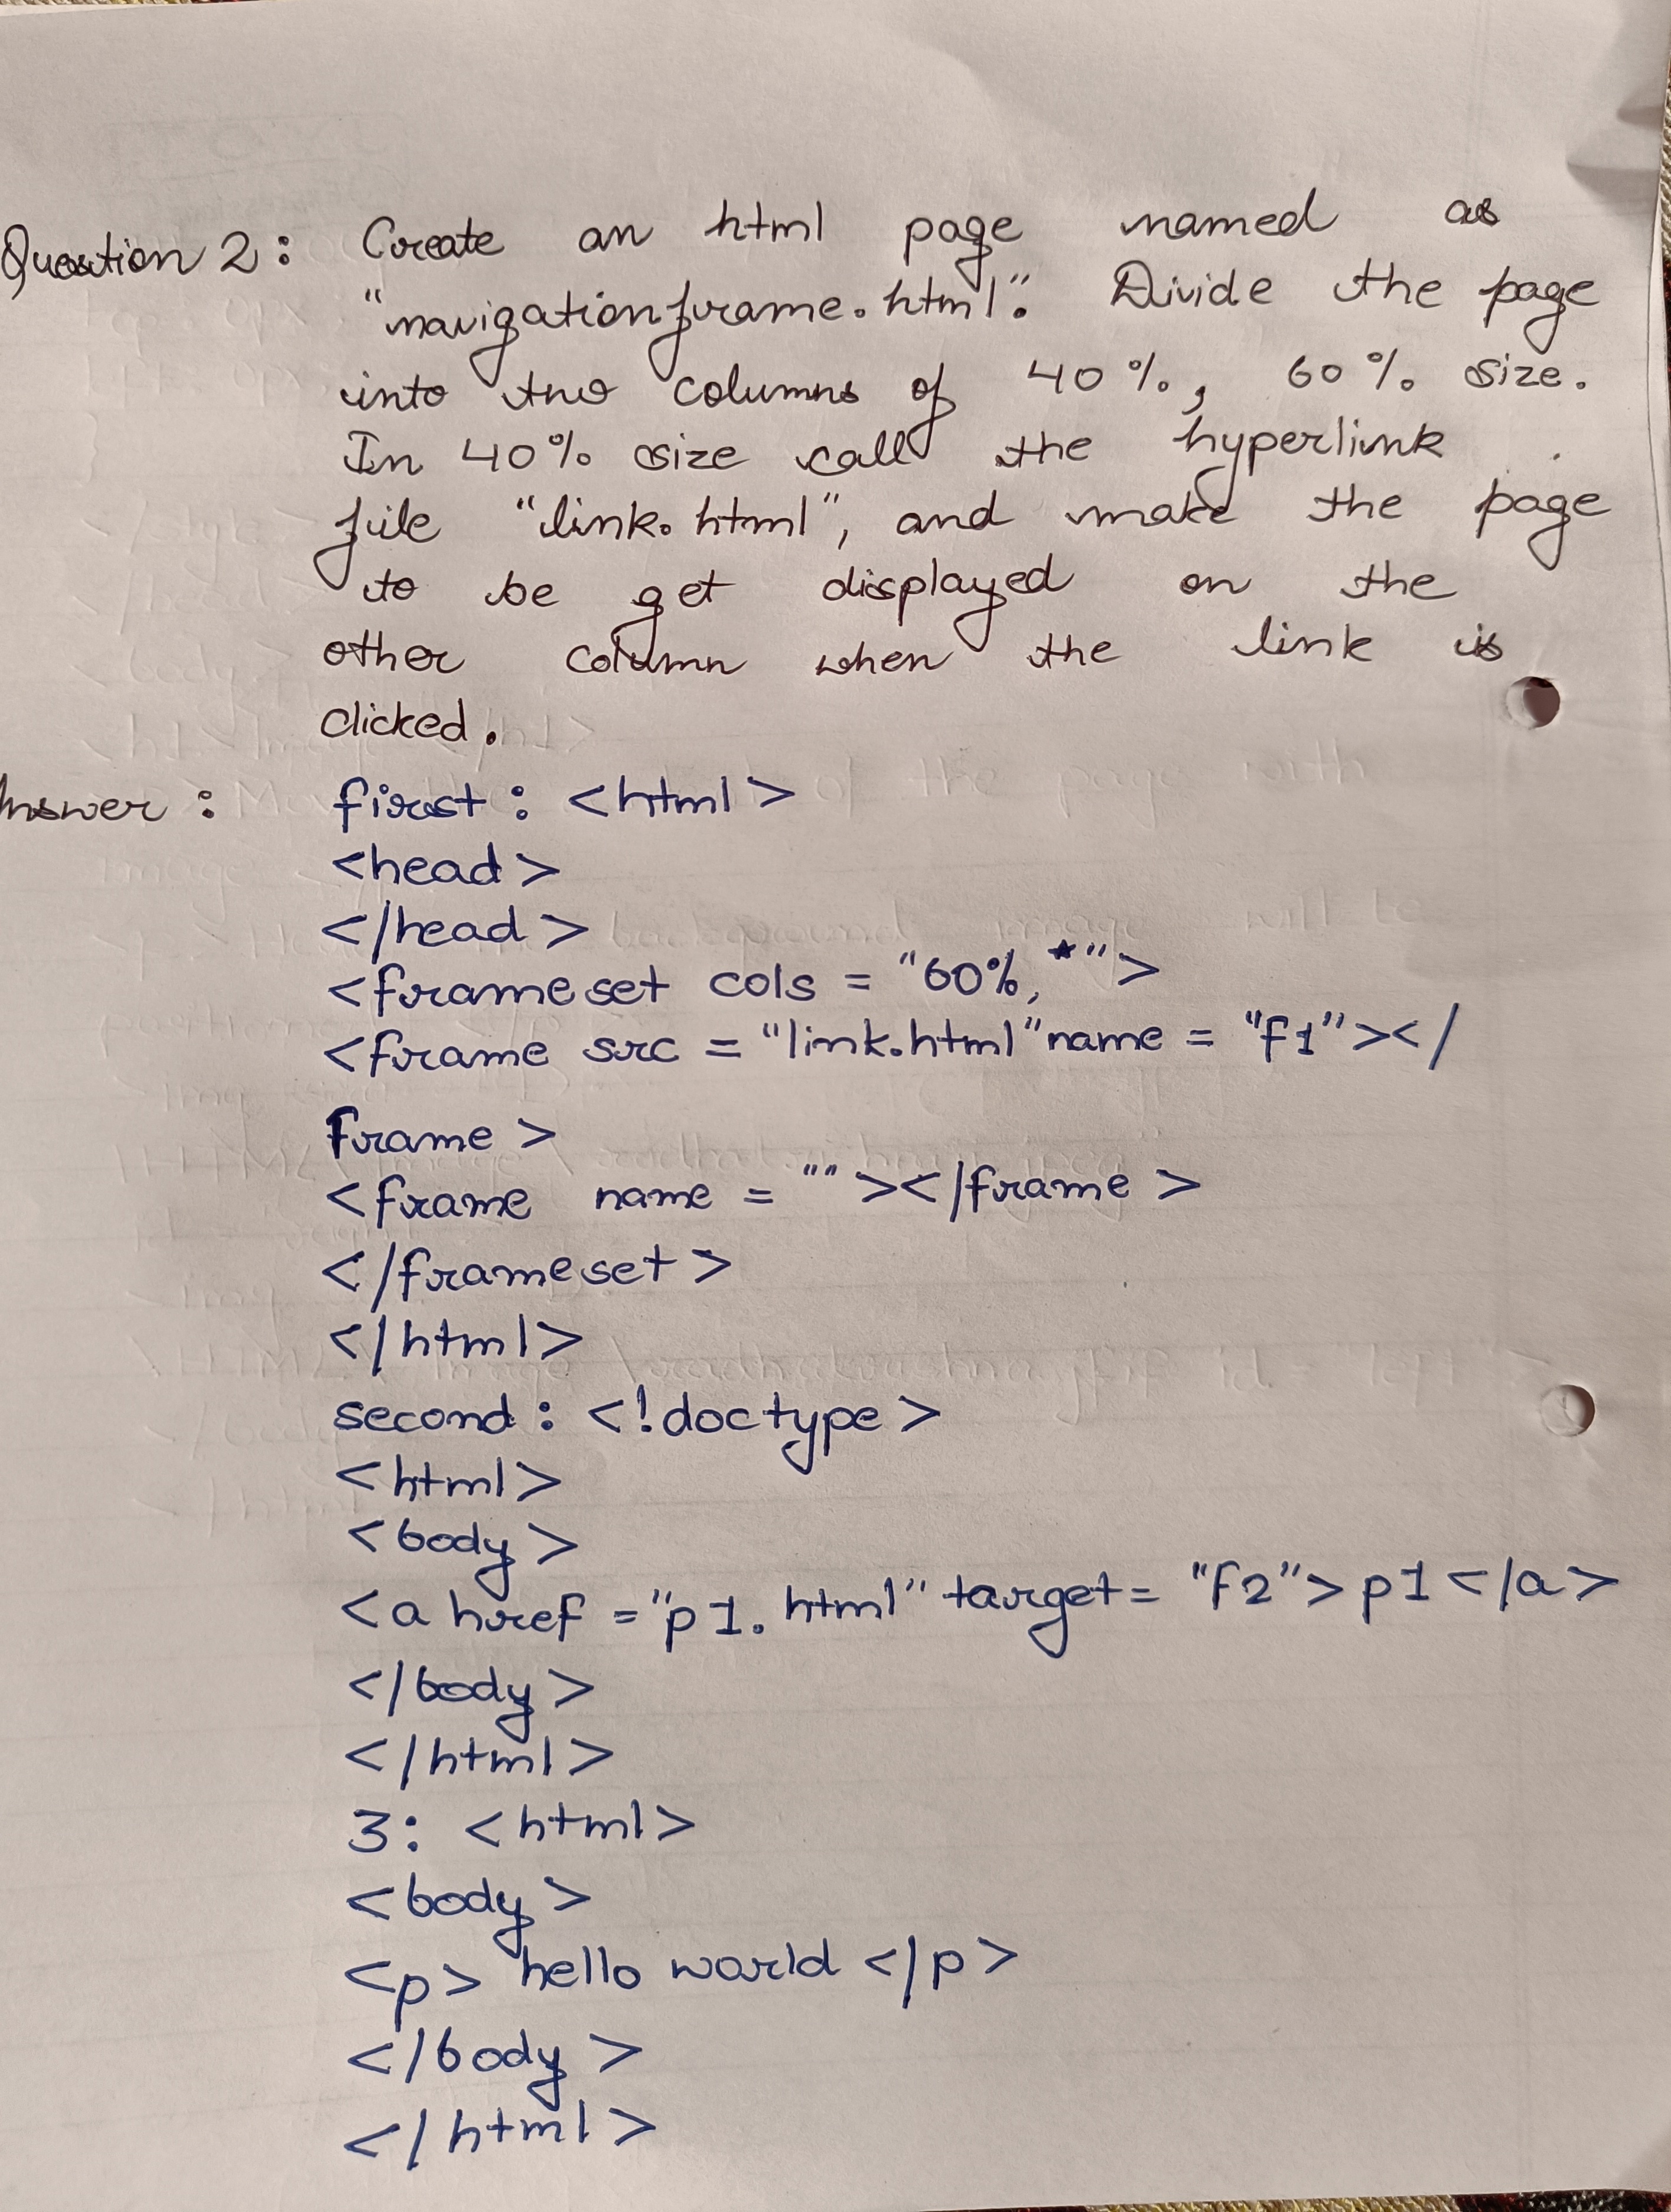 Question 2: Create an html page named as
"navigationframe.html". Divide the page
into two columns of 40%, 60% size.
In 40% size call the hyperlink
file "link.html", and make the page
to be get displayed on the
other column when the link is
clicked.
Answer: first: <html>
<head>
</head>
<frameset cols = "60%,*">
<frame src = "link.html" name = "f1"></
frame>
<frame name = ""></frame>
</frameset>
</html>
second: <!doctype>
<html>
<body>
<a href ="p1.html" target= "f2">p1</a>
</body>
</html>
3: <html>
<body>
<p> hello world </p>
</body>
</html>